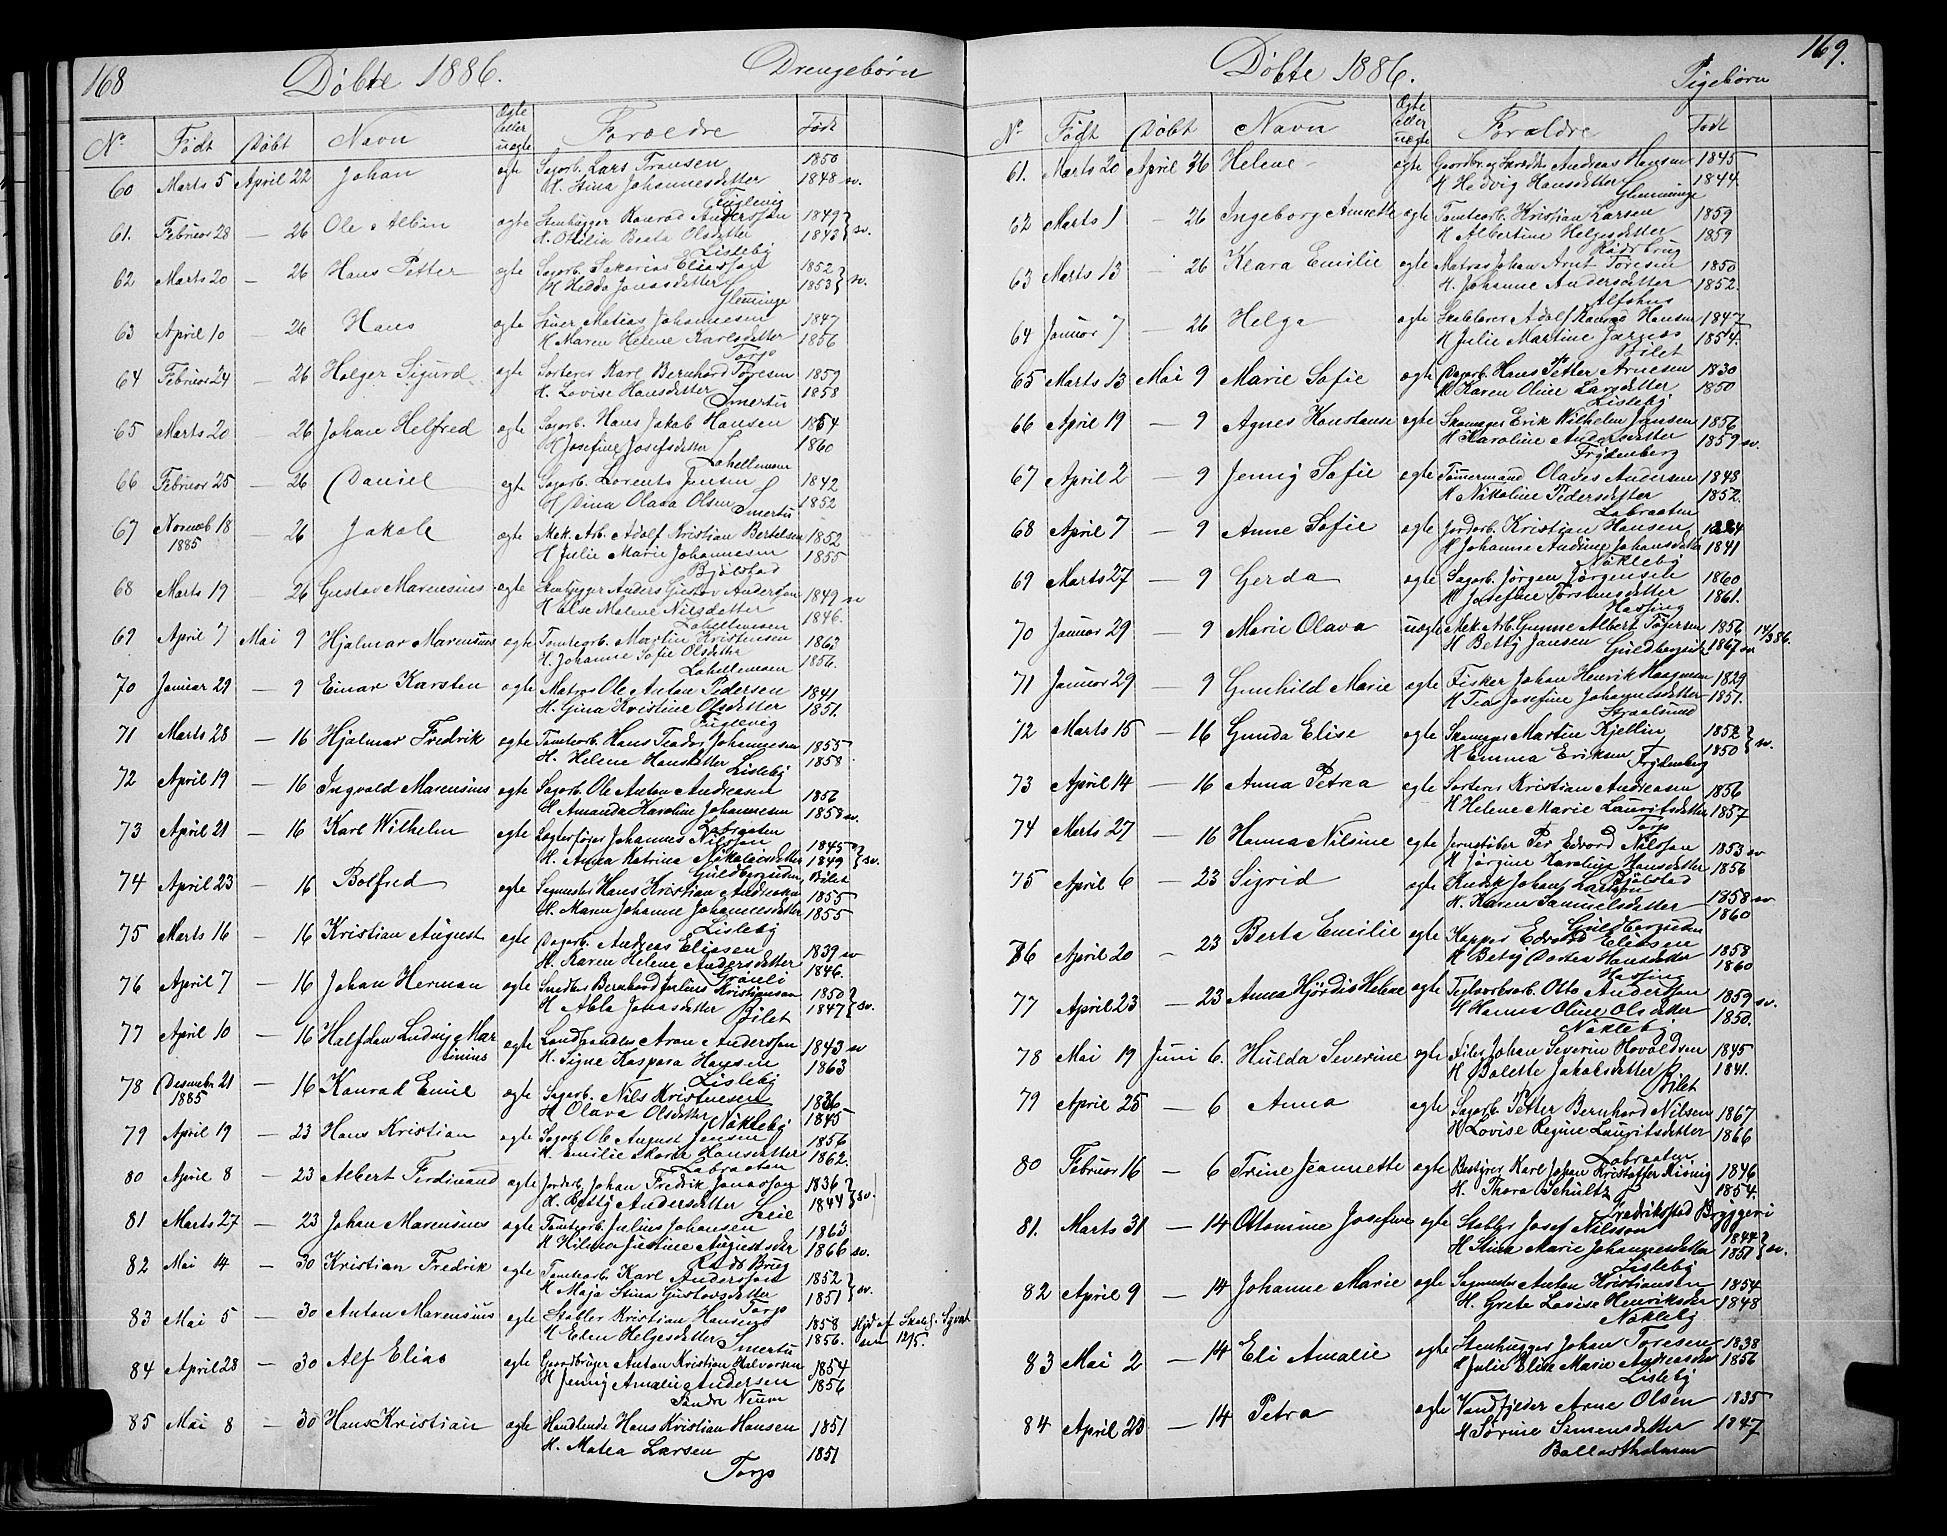 168 Døbte 1886. Drengebørn
No Født Døbt Navn Ægte eller uægte Forældre Født
60 Marts 5 April 22 Johan ægte Sagarb. Lars Fransen 1850
H. Stina Johannesdatter 1848 sv.
Fuglevig
61. Februar 28 — 26 Ole Albin ægte Stenhugger Konrad Anderssøn 1849
H. Otilia Beata Olsdatter 1843 sv.
Lisleby
62 Marts 20 — 26 Hans Petter ægte Sagarb. Sakarias Eliassøn 1852
H Hedda Jonasdatter 1853 sv.
Glemminge
63 April 10 — 26 Hans ægte Siver Matias Johannesen 1847
H Maren Helene Karlsdatter 1856
Torp
64 Februar 24 — 26 Holger Sigurd ægte Sorterer Karl Bernhard Toresen 1859
H. Lovise Hansdatter 1858
Smertu
65 Marts 20 — 26 Johan Helfred ægte Sagarb. Hans Jakob Hansen 1854
H Josefine Josefsdatter 1860
Lahellemoen
66 Februar 25 — 26 Daniel ægte Sagarb. Lorents Jensen 1842
H Dina Olava Olsen 1852
Smertu
67 Novmb 18 1885 — 26 Jakob ægte Mek. Arb. Adolf Kristian Bertelsen 1852
H Julie Marie Johannesen 1855
Bjølstad
68 Marts 19 — 26 Gustav Marensius ægte Stenhugger Anders Gustav Anderssøn 1849 sv
H Else Malene Nilsdatter 1846.
Lahellemoen
69 April 7 Mai 9 Hjalmar Marensius ægte Tomtearb. Martin Kristensen 1862
H. Johanne Sofie Olsdatter 1856.
Lahellemoen
70 Januar 29 — 9 Einar Karsten ægte Matros Ole Anton Pedersen 1841
H. Gina Kristine Olsdatter 1851.
Fuglevig
71 Marts 28 — 16 Hjalmar Fredrik ægte Tomtearb. Hans Teodor Johannesen 1855
H. Helene Hansdatter 1858
Lisleby
72 April 19 — 16 Ingvald Marensius ægte Sagarb. Ole Anton Andreasen 1856
H Amanda Karoline Johannesen 1858 sv.
Labraaten
73 April 21 — 16 Karl Wilhelm ægte Logterføger Johannes Nilssøn 1845
H. Anna Katrina Nikolaisdatter 1849 sv.
Guldbergsiden Bilet
74 April 23 — 16 Botfred ægte Sagmester Hans Kristian Andreasen 1855
H. Maren Johanne Johannesdatter 1855
Lisleby
75 Marts 16 — 16 Kristian August ægte Dagarb. Andreas Eliasen 1839 sv
H. Karen Helene Andersdatter 1846.
Grønli
76 April 7 — 16 Johan Herman ægte Smedsv. Bernhard Julius Kristiansen 1850
H Abla Jonasdatter 1847 sv.
Bilet
77 April 10 — 16 Halfdan Ludvig Martinius ægte Landhandler Aron Anderssøn 1843 sv
H. Signe Kaspara Hansen 1863
Lisleby
78 Desember 21 1885 — 16 Konrad Emil ægte Sagarb. Nils Kristnesen 1836
H Olava Olsdatter 1845
Nøkleby
79 April 19 — 23 Hans Kristian ægte Sagarb. Ole August Jensen 1856
H. Emilie Marie Hansdatter 1862.
Labraaten
80 April 8 — 23 Albert Ferdinand ægte Jorderb. Johan Fredrik Jonassøn 1836
H. Betty Andersdatter 1844 sv.
Leie
81 Marts 27 — 23 Johan Marensius ægte Tomtearb. Julius Johansen 1863
H Hilma Justine Augustsdtr 1866 sv.
Raads Brug
82 Mai 14 — 30 Kristian Fredrik ægte Tomtearb Karl Anderssøn 1852
H Maja Stina Gustavsdatter 1851 sv.
Torp
83 Mai 5 — 30 Anton Marensius ægte Stabler Kristian Hansen 1858
H Elen Helgesdatter 1856.
Smertu
84 April 28 — 30 Alf Elias ægte Gaardbruger Anton Kristian Halvorsen 1854
H Jenny Amalie Andersen 1856
Søndre
85 Mai 8 — 30 Hans Kristian ægte Handlende Hans Kristian Hansen 1851
H. Matea Larsen 1851
Torp
Døbte 1886. Pigebørn 169.
No Født Døbt Navn Ægte eller uægte Forældre Født
61. Marts 20 April 26 Helene ægte Gaardbr. og Skrædder Andreas Hansen 1845
H Hedvig Hansdatter 1844.
Glemminge
62 Marts 1 — 26 Ingeborg Annette ægte Tomtearb. Kristian Larsen 1859
H Albertine Helgesdatter 1859
Raads brug
63 Marts 13 — 26 Klara Emilie ægte Matros Johan Arnt Toresen 1850
H. Johanne Andersdatter 1852.
Alfshus
64 Januar 7 — 26 Helga ægte Skolelærer Adolf Konrad Hansen 1847
H Julie Martine Jørgens 1854.
Bilet
65 Marts 13 Mai 9 Marie Sofie ægte Dagarb. Hans Petter Arnesen 1830
H Karen Oline Larsdatter 1850
Lisleby
66 April 19 — 9 Agnes Konstanse ægte Skomager Erik Wilhelm Jansen 1856
H Karoline Andersdatter 1859 sv.
Frydenberg
67 April 2 — 9 Jenny Sofie ægte Tømmermand Olaves Andersen 1848
H Nikoline Pedersdatter 1852.
Labraaten
68 April 7 — 9 Anne Sofie ægte Jordarb. Kristian Hansen
H Johanne Andine Johansdatter 1841
Nøkleby
69 Marts 27 — 9 Gerda ægte Sagarb. Jørgen Jørgensen 1860
H Josefine Torstensdatter 1861.
Hassing
70 Januar 29 — 9 Marie Olava uægte Mek. Arb. Gunne Albert Tøgersen 1856 14/3 86.
H Betty Jansen Guldbergsid 1867 sv
71 Januar 29 — 9 Gunhild Marie ægte Fisker Johan Henrik Magnusen 1829
H Tea Josefine Johannesdatter 1857.
Straalsund
72 Marts 15 — 16 Gunda Elise ægte Skomager Martin Kjellin 1852
H Emma Eriksen 1850 sv.
Frydenberg
73 April 14 — 16 Anna Petrea ægte Sorterer Kristian Andreasen 1856
H Helene Marie Lauritsdatter 1857
Torp
74 Marts 27 — 16 Hanna Nilsine ægte Jernstøber Per Edvard Nilssøn 1853 sv
H Jørgine Karoline Hansdatter 1856
Bjølstad
75 April 6 — 23 Sigrid ægte Kudsk Johan Larssøn 1858 sv
H. Karen Samuelsdatter 1860
Guldbergsiden
76 April 20 — 23 Berta Emilie ægte Kapper Edvard Eliasen 1858
H Betsy Dortea Hansdatter 1860
Hassing
77 April 23 — 23 Anna Hjørdis Helene ægte Teglværksarb. Otto Anderssøn 1859 sv.
H Hanna Oline Olsdatter 1850.
Nøkleby
78 Mai 19 Juni 6. Hulda Severine ægte Filer Johan Severin Hovaldsen 1845
H Bolette Jakobsdatter 1841.
Bilet
79 April 25 — 6 Anna ægte Sagarb. Petter Bernhard Nilsen 1867
H Lovise Regine Lauritsdatter 1866
Labraaten
80 Februar 16 — 6 Trine Jeannette ægte Bestyrer Karl Johan Kristoffer Kiönig 1846
H. Thora Schultz 1854.
Fredrikstad Bryggeri
81. Marts 31 — 14 Ottomine Josefine ægte Stabler Josef Nilssøn 1844
H Stina Marie Johannesdatter 1851 sv.
Lisleby
82 April 9 — 14 Johanne Marie ægte Sagmester Anton Kristiansen 1854
H. Grete Lovise Henriksdtr 1848
Nøkleby
83 Mai 2 — 14 Eli Amalie ægte Stenhugger Johan Toresen 1838
H Julie Elise Marie Andreasdtr 1856
Lisleby
84 April 23 — 14 Petra ægte Vandkjører Arne Olsen 1835
H Sørine Simensdatter 1847
Ballastholmen